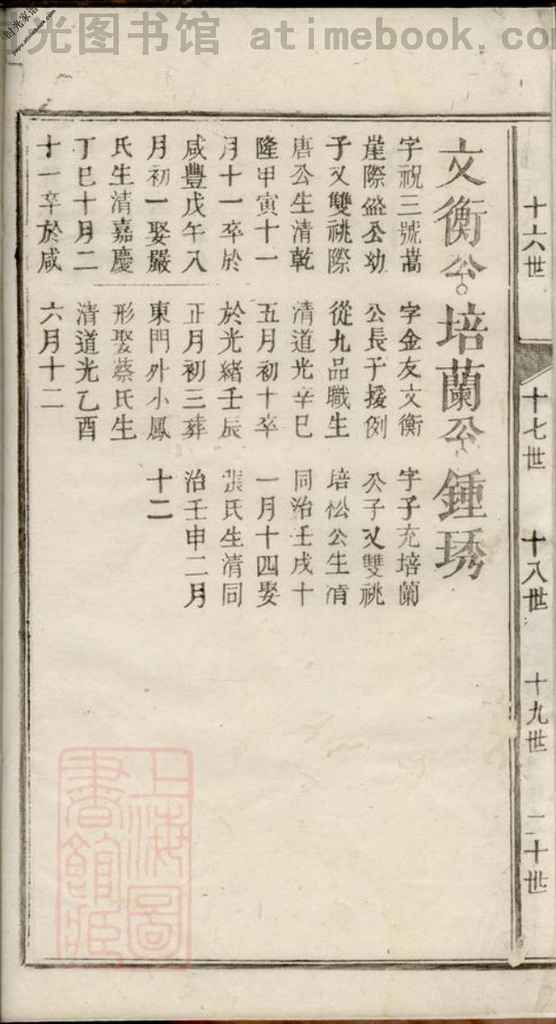 光图书馆 atimebook.co
十六世
十七世
十八世
十九世
二十世
文衡公
字祝三號嵩
崖際盛公幼
子又雙祧際
唐公生清乾
隆甲寅十一
月十一卒於
咸豐戊午八
月初一娶嚴
氏生清嘉慶
丁巳十月二
十一卒於咸
培蘭公
字金友文衡
公長子援例
從九品職生
清道光辛巳
五月初十卒
於光緒壬辰
正月初三葬
東門外小鳳
形娶蔡氏生
清道光乙酉
六月十二
鍾琇
字子充培蘭
公子又雙祧
培松公生清
同治壬戌十
一月十四娶
張氏生清同
治壬申二月
十二
上海圖
書館藏